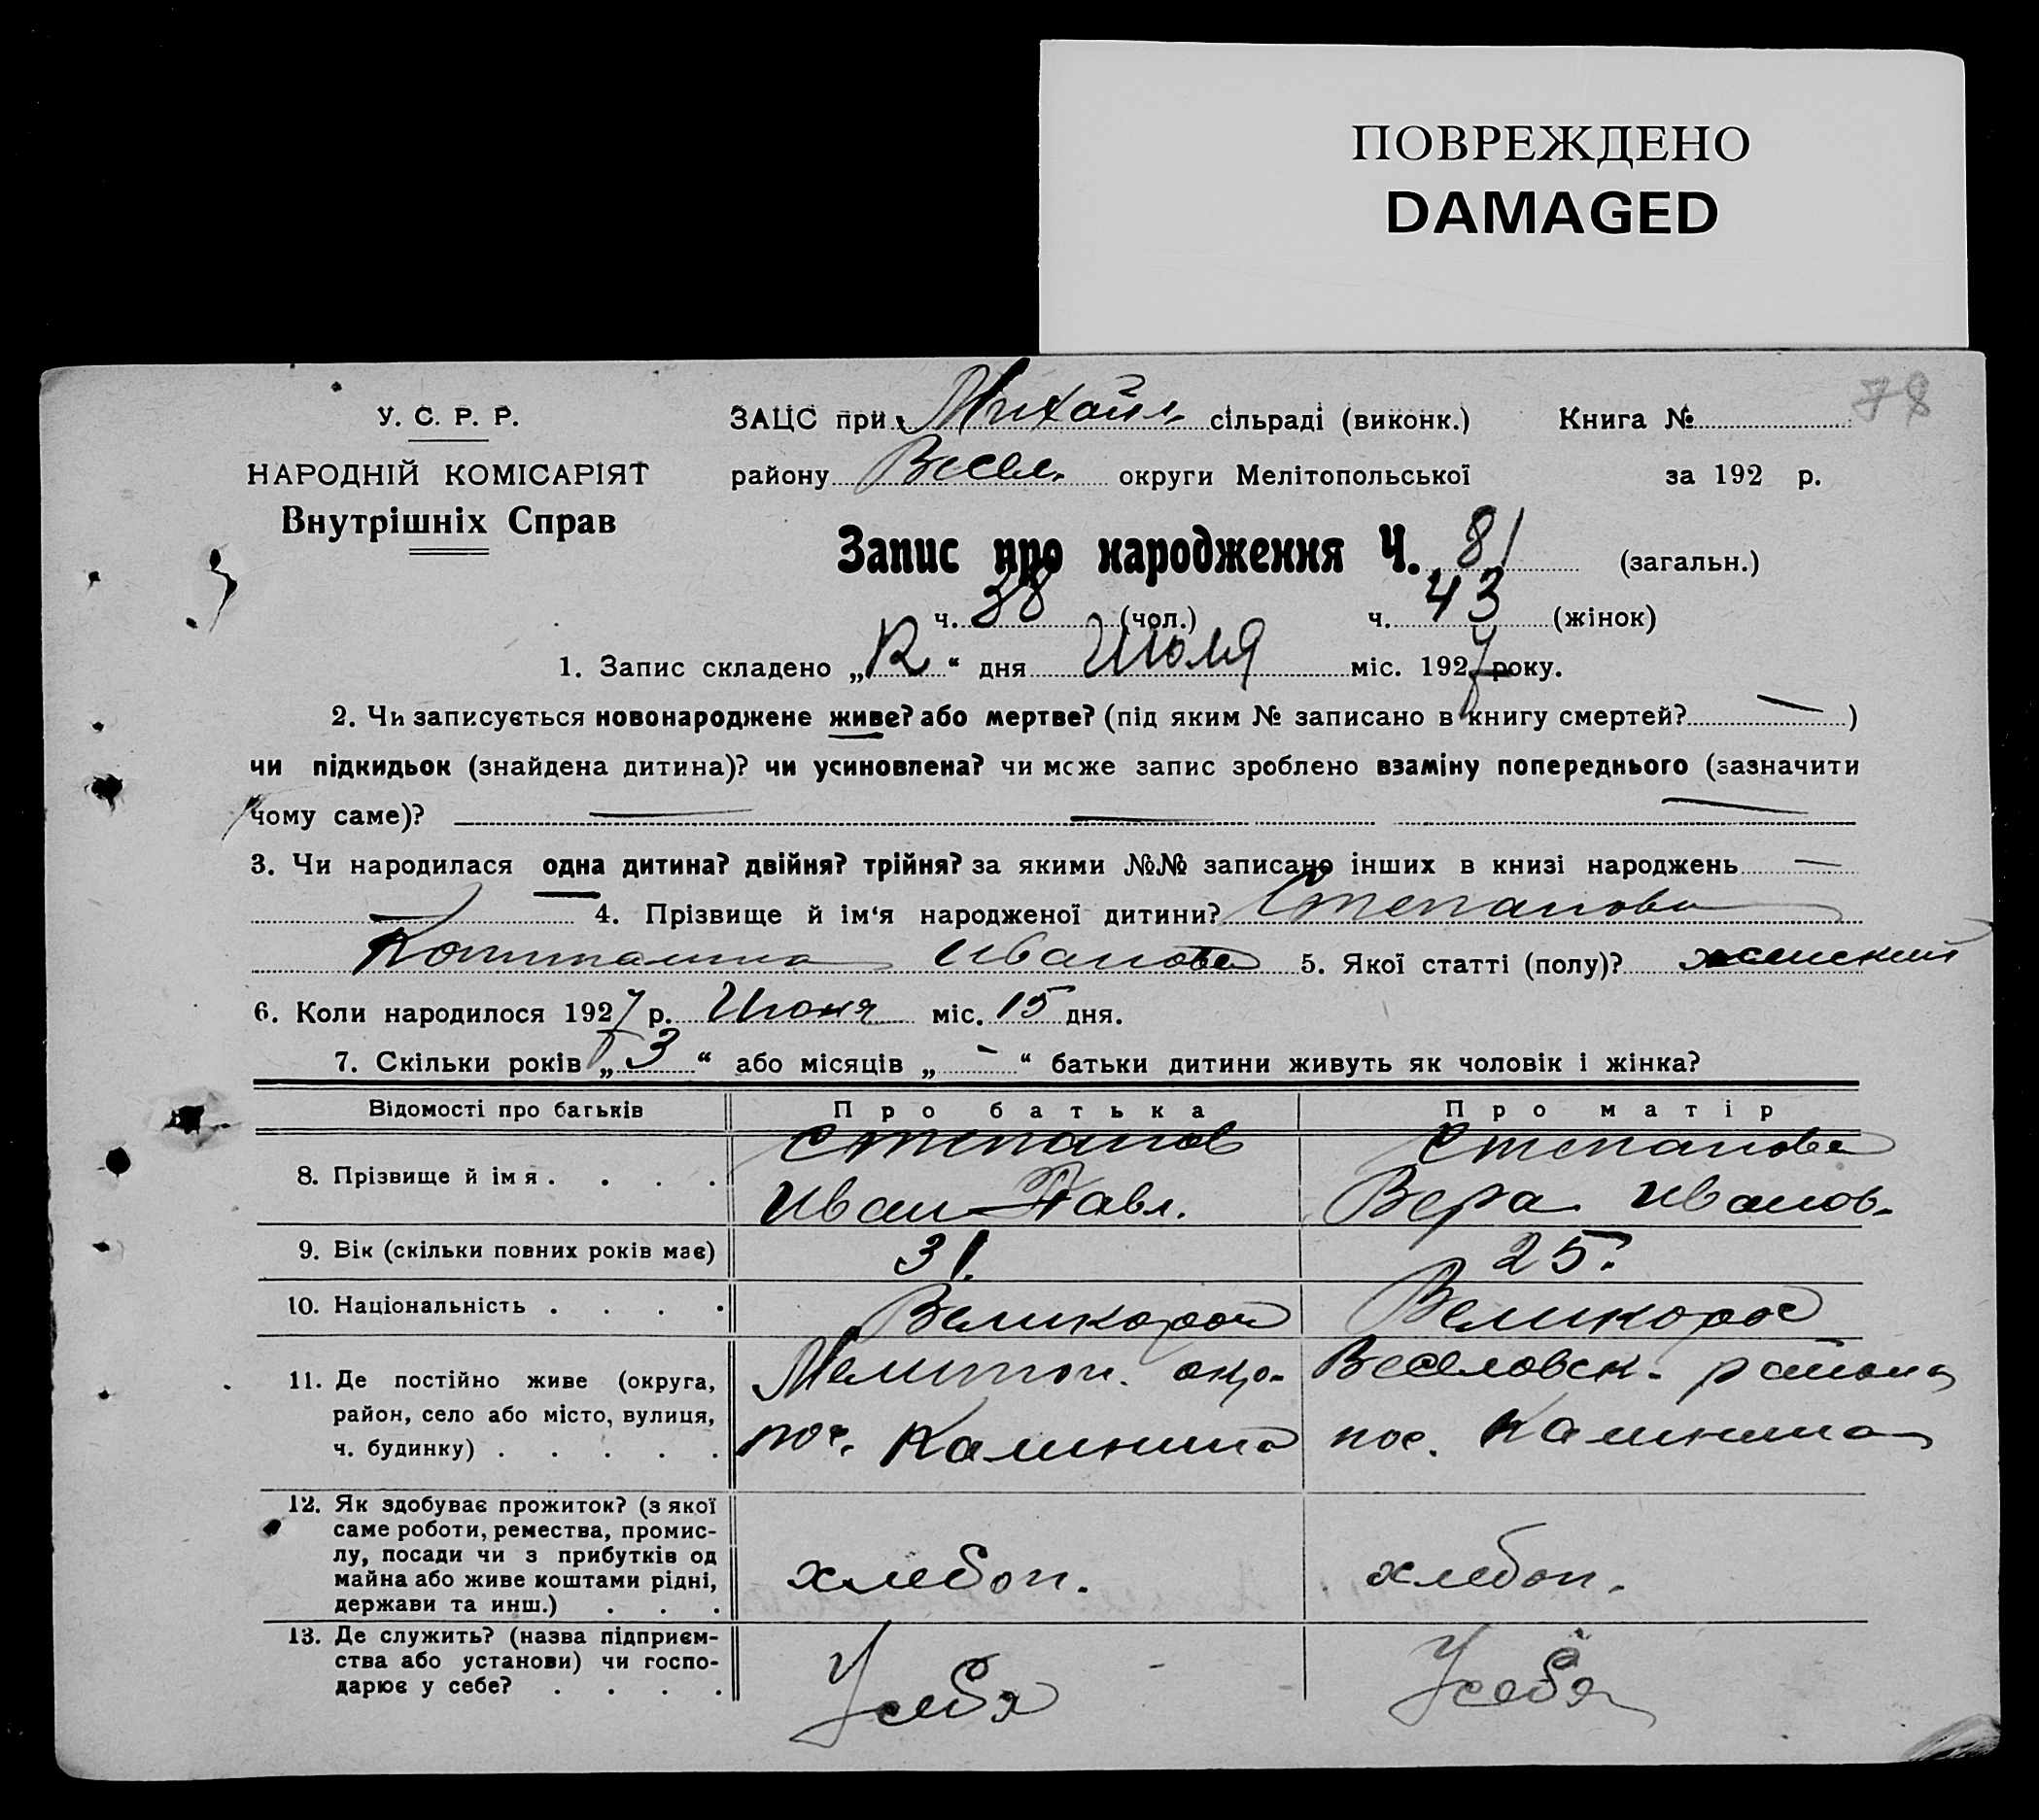 ПОВРЕЖДЕНО
DAMAGED
78
У. С. Р. Р.
НАРОДНІЙ КОМІСАРІЯТ
Внутрішніх Справ
ЗАЦС при Михайл. сільраді (виконк.) Книга №
району Весел. округи Мелітопольської за 192 р.
Запис про народження Ч. 81 (загальн.)
ч. 38 (чол.) ч. 43 (жінок)
1. Запис складено „12“ дня Июля міс. 1927 року.
2. Чи записується новонароджене живе? або мертве? (під яким № записано в книгу смертей? — )
чи підкидьок (знайдена дитина)? чи усиновлена? чи може запис зроблено взаміну попереднього (зазначити
чому саме)? — — —
3. Чи народилася одна дитина? двійня? трійня? за якими №№ записано інших в книзі народжень —
— 4. Прізвище й ім‘я народженої дитини? Степанова
Иванова 5. Якої статті (полу)? женский
6. Коли народилося 1927 р. Июня міс. 15 дня.
7. Скільки років „ 3 “ або місяців „ - “ батьки дитини живуть як чоловік і жінка?
Відомості про батьків Про батька Про матір
8. Прізвище й імя . . . . Степанов Степанова
Иван Павл. Вера Иванов.
9. Вік (скільки повних років має) 31. 25.
10. Національність . . . . Великорос Великорос
11. Де постійно живе (округа, Мелитоп. окр. Веселовск. района
район, село або місто, вулиця,
ч. будинку) . . . . . пос. Калинина пос. Калинина
12. Як здобуває прожиток? (з якої
саме роботи, ремества, промис-
лу, посади чи з прибутків од
майна або живе коштами рідні, хлебоп. хлебоп.
держави та инш.) . . .
13. Де служить? (назва підприєм-
ства або установи) чи госпо-
дарює у себе? . . . . У себя У себя